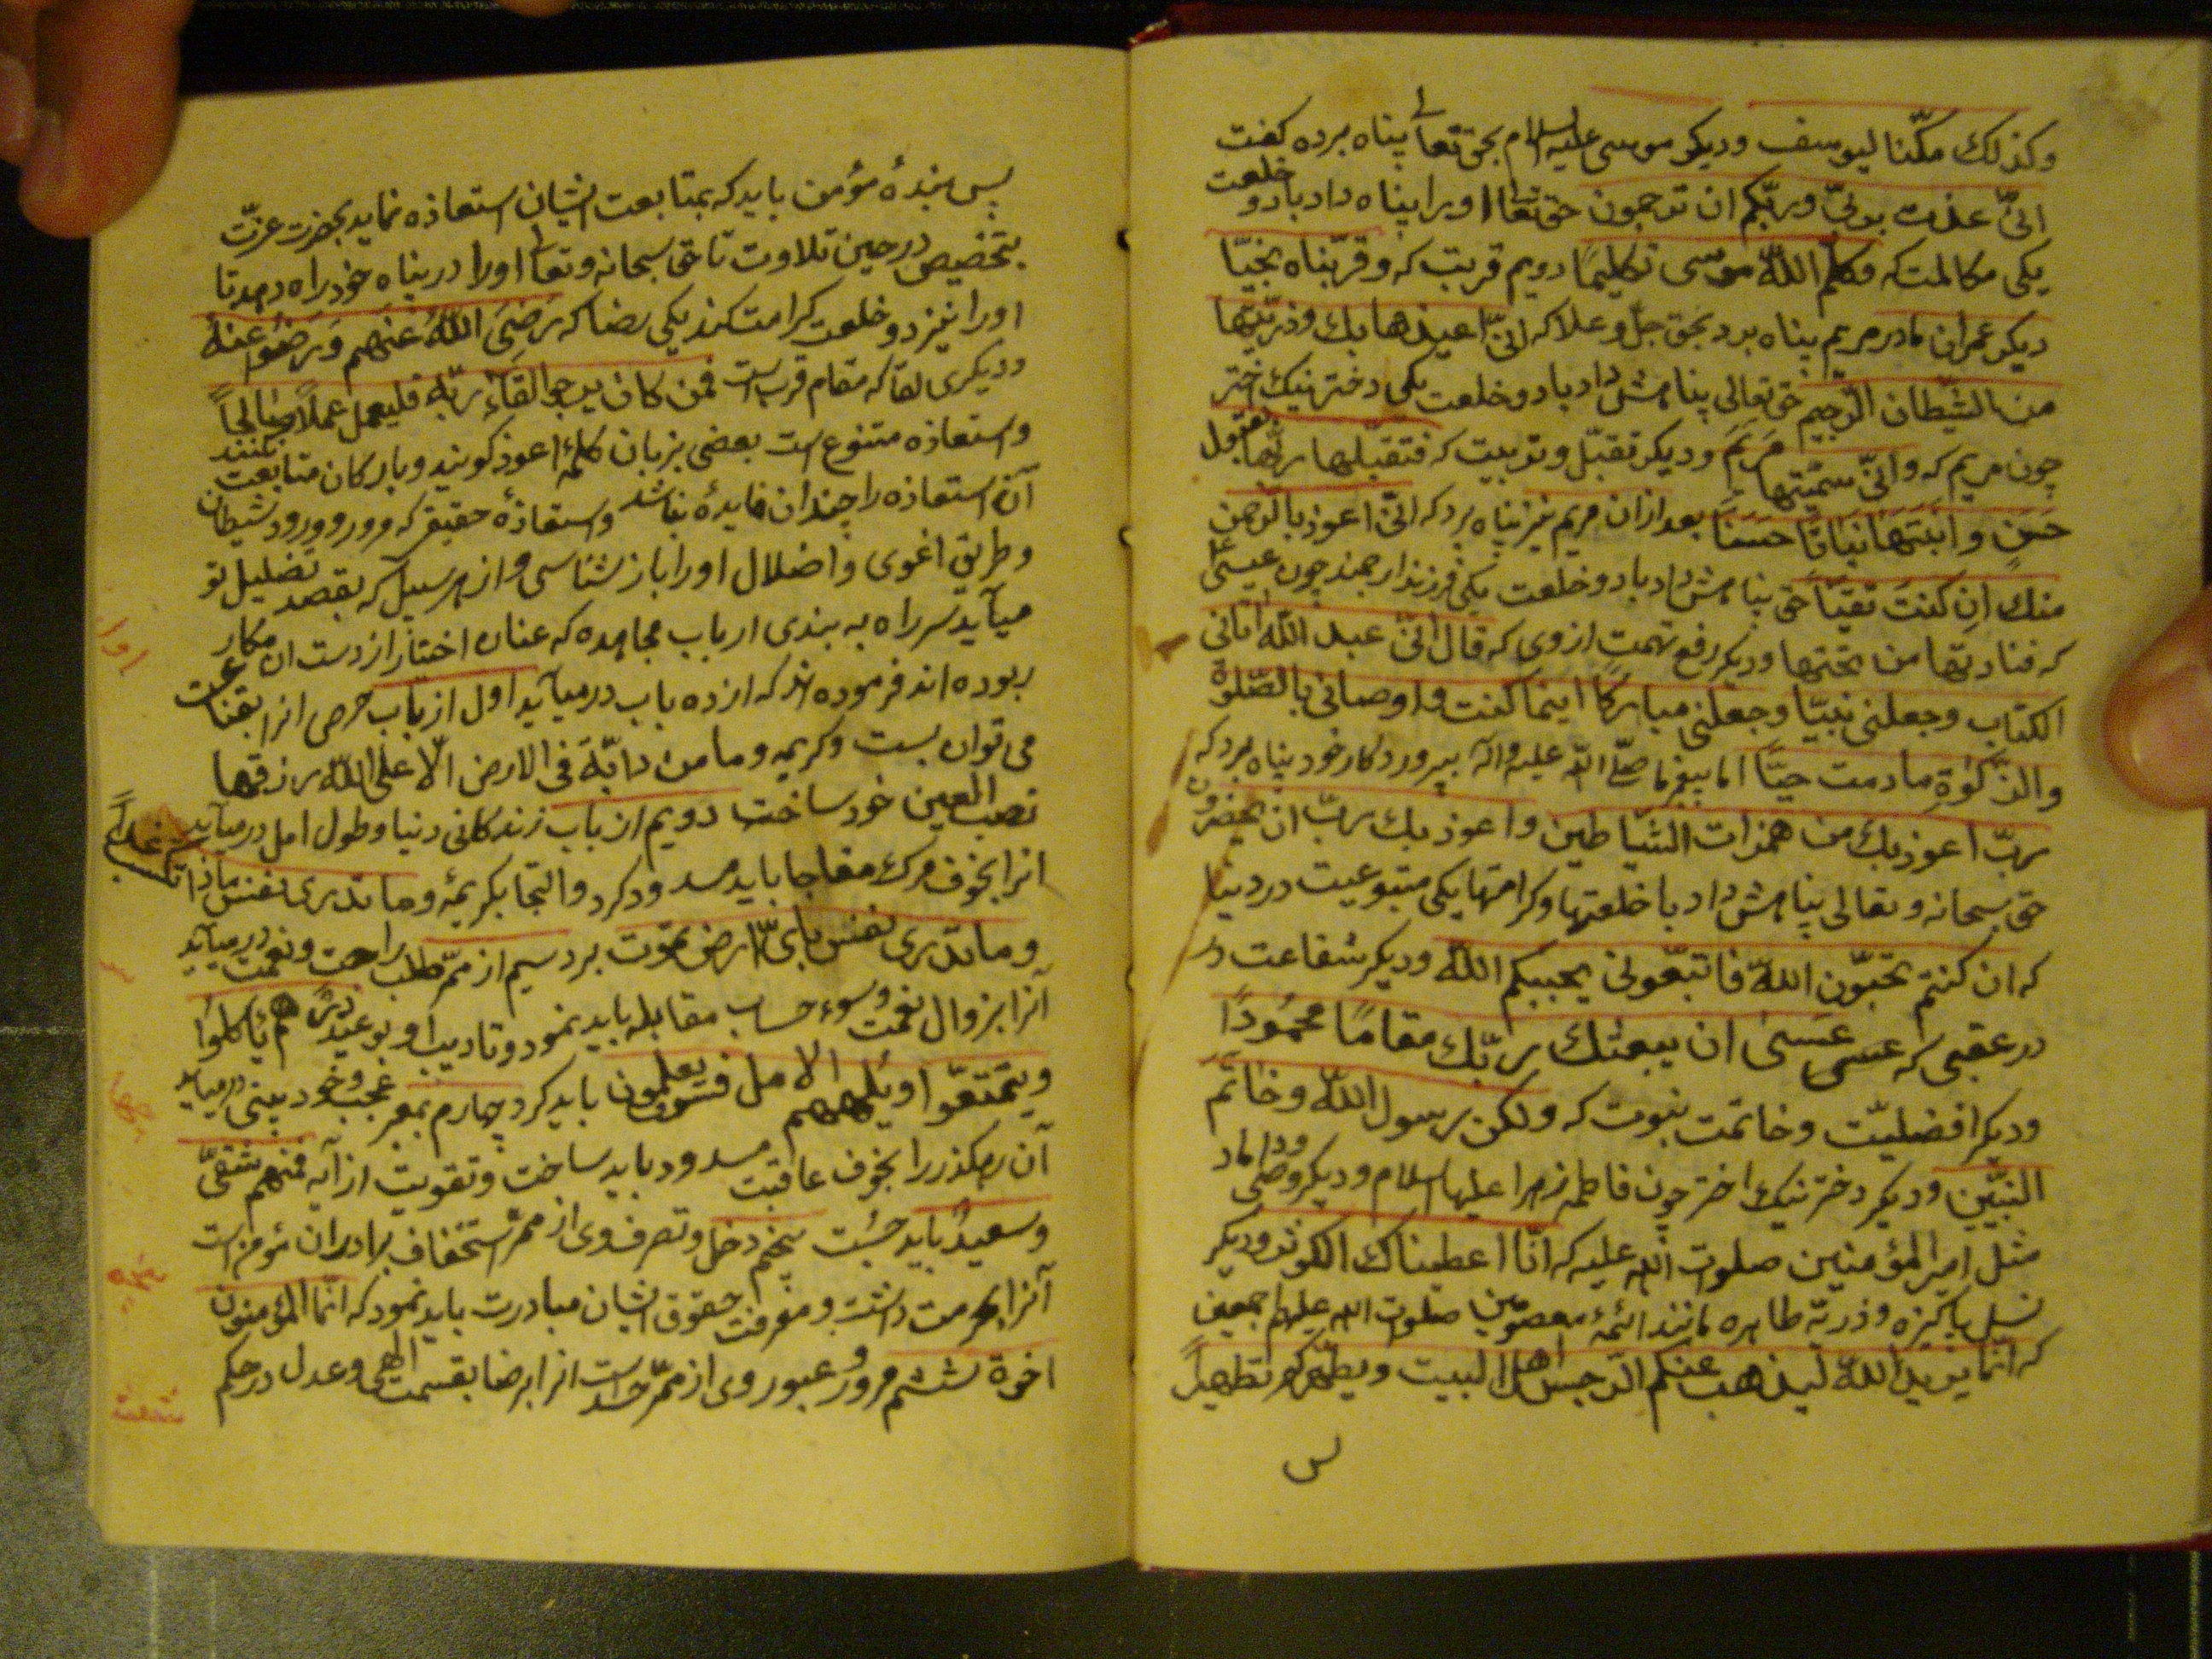 وكذلك مكّنّا ليوسف وديكر موسى عليه السلام بحق تعالى پناه برده كفت
انّى عذت بربّى وربّكم ان ترجمون حق تعالى اورا پناه داد با دو خلعت
يكى مكالمت كه وكلّم اللّه موسى تكليمًا دويم قربت كه وقرّبناه نجيّا
ديكر عمران مادر مريم پناه برد بحق جلّ وعلا كه انّى اعيذها بك وذرّيّتها
من الشّيطان الرّجيم حق تعالى پناهش داد با دو خلعت يكى دختر نيك اختر
چون مريم كه وانّى سمّيتها مَريَم وديكر تقبّل وتربيت كه فتقبّلها ربّها بقبول
حَسَن وانبتها نباتًا حسنًا بعد ازان مريم نيز پناه برد كه انّى اعوذ بالرحمن
منك ان كنتَ تقيّا حق پناهش داد با دو خلعت يكى فرزند ارجمند چون عيسى ع
كه فنادیها من تحتها وديكر رفع تهمت ازوى كه قال انّى عبد اللّه اتانى
الكتاب وجعلنى نبيّا وجعلنى مباركًا اينما كنت واوصانى بالصّلوة
والزّكوٰة مادمت حيًّا اما پيغمبر ما صلّى اللّه عليه وآله بپروردكار خود پناه برد كه
ربّ اعوذ بك من همزات الشياطين واعوذ بك ربّ ان يحضرون
حق سبحانه وتعالى پناهش داد با خلعتها وكرامتها يكى متبوعيت در دنيا
كه ان كنتم تحبّون اللّه فاتّبعونى يحببكم اللّه وديكر شفاعت در
در عقبى كه عسى عَسَىٰ ان يبعثك ربّك مقامًا محمُودًا
وديكر افضليّت وخاتمت نبوت كه ولكن رسول اللّه وخاتم
النبيّين وديكر دختر نيك اختر چون فاطمه زهرا عليها السلام وديكر وصى وداماد
مثل امير المؤمنين صلوات اللّه عليه كه انّا اعطيناك الكوثر وديكر
نسل پاكيزه وذريّه طاهره مانند ائمّهٔ معصومين صلوات اللّه عليهم اجمعين
كه انّما يريد اللّه ليذهب عنكم الرّجس اهل البيت ويطهّركم تطهيراً
پس
پس بندهٔ مؤمن بايد كه بمتابعت ايشان استعاذه نمايد بحضرت عزّت
بتخصيص در حين تلاوت تا حق سبحانه وتعالى اورا در پناه خود راه دهد تا
اورا نيز دو خلعت كرامت كند يكى رضا كه رَضِىَ اللّهُ عَنهم وَرَضُوا عنهُ
وديكرى لقا كه مقام قرب است فمن كان يرجوا لقاءَ ربّه فليعمل عملاً صالحاً
واستعاذه متنوع است بعضى بزبان كلمهٔ اعوذ كويند وباركان متابعت نكنند
آن استعاذه را چندان فايدهٔ نباشد واستعاذهٔ حقيقى كه مرور وورود شيطان
وطريق اغوى واضلال اورا باز شناسى واز هر سبيل كه بقصد تضليل تو
ميآيد سر راه به بندى ارباب مجاهده كه عنان اختيار از دست ان مكار
ربوده اند فرموده اند كه از ده باب در ميآيد اول از باب حرص انرا بقناعت
مى توان بست وكريمه وما من دابّة فى الارض الّا على اللّه رزقها
نصب العين خود ساخت دويم از باب زندكانى دنيا وطول امل در ميآيد
انرا بخوف مرك مفاجا بايد مسدود كرد والتجا بكريمهٔ وما تدرى نفس ماذا تكسب غداً
وما تدرى نفس باىّ ارض تموت برد سيم از ممّر طلب راحت ونعمت در ميآيد
آنرا بزوال نعمت وسوء حساب مقابله بايد نمود وتاديب او بوعيد ذرهم يأكلوا
ويتمتّعوا ويُلههم الامل فسوف يعلمون بايد كرد چهارم بممر عجب وخود بينى در ميآيد
آن رهكذر را بخوف عاقبت مسدود بايد ساخت وتقويت از آيه فمنهم شقىّ
وسعيد بايد جُست پنجم دخل وتصرف وى از ممرّ استخفاف برادران مؤمن است
آنرا بحرمت داشت ومعرفت حقوق ايشان مبادرت بايد نمود كه انّما المؤمنون
اخوة ششم مرور وعبور وى از ممّر حسد است انرا برضا بقسمت الٰهى وعدل در حكم